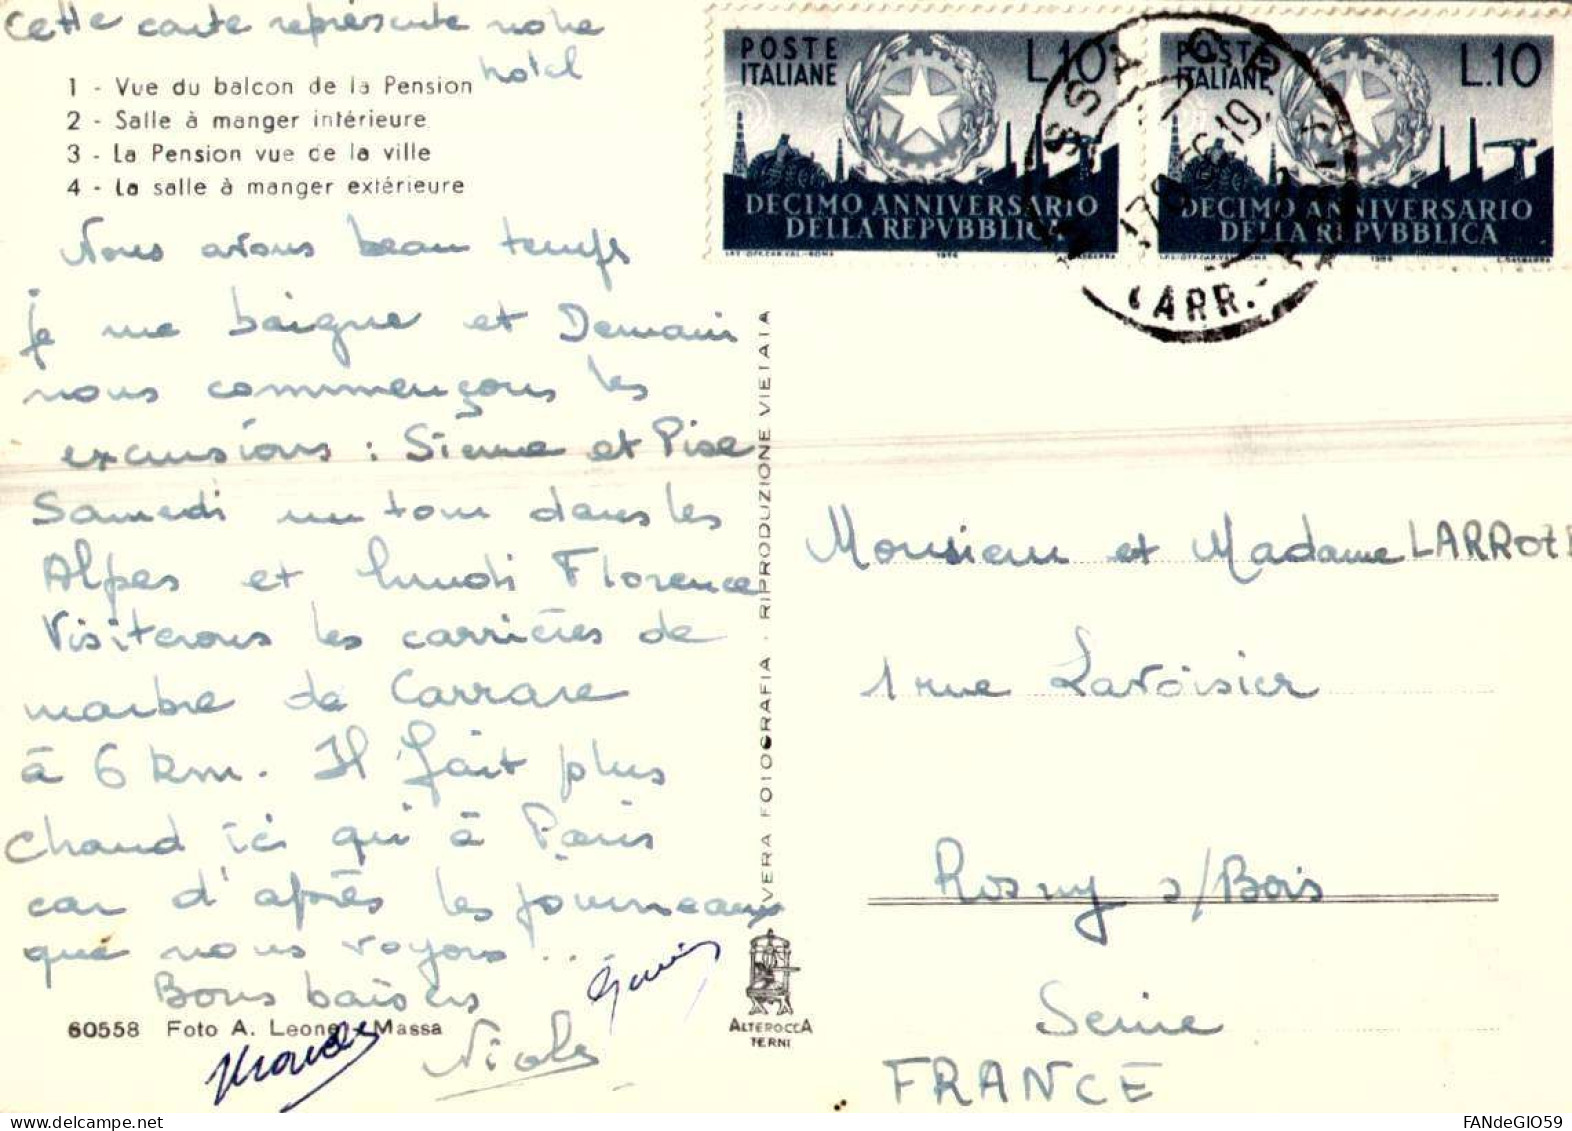 Cette carte représente notre
hotel
1 - Vue du balcon de la Pension
2 - Salle à manger intérieure
3 - La Pension vue de la ville
4 - La salle à manger extérieure
Nous avons beau temps
je me baigne et Demain
nous commençons les
excursions : Sienne et Pise
Samedi un tour dans les
Alpes et lundi Florence
Visiterons les carrières de
marbre de Carrare
à 6 km. Il fait plus
chaud ici qu'à Paris
car d'après les journeaux
que nous voyons...
Bons baisers
Nicole
60558 Foto A. Leone - Massa
VERA FOTOGRAFIA - RIPRODUZIONE VIETATA
ALTEROCCA
TERNI
POSTE
ITALIANE
L.10
DECIMO ANNIVERSARIO
DELLA REPVBBLICA
1956
POSTE
ITALIANE
L.10
DECIMO ANNIVERSARIO
DELLA REPVBBLICA
1956
MASSA
(ARR.
Monsieur et Madame
1 rue Lavoisier
Rosny s/Bois
Seine
FRANCE
FANdeGIO59